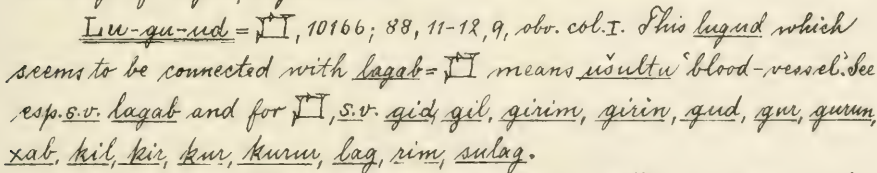 Lu-gu-ud = 𒆸, 10166; 88, 11-12, 9, obv. col. I. This lugud which
seems to be connected with lagab = 𒆸 means ušultu ‘blood-vessel’. See
esp. s.v. lagab and for 𒆸, s.v. gid, gil, girim, girin, gud, gur, gurun,
xab, kil, kir, kur, kurur, lag, rim, sulag.